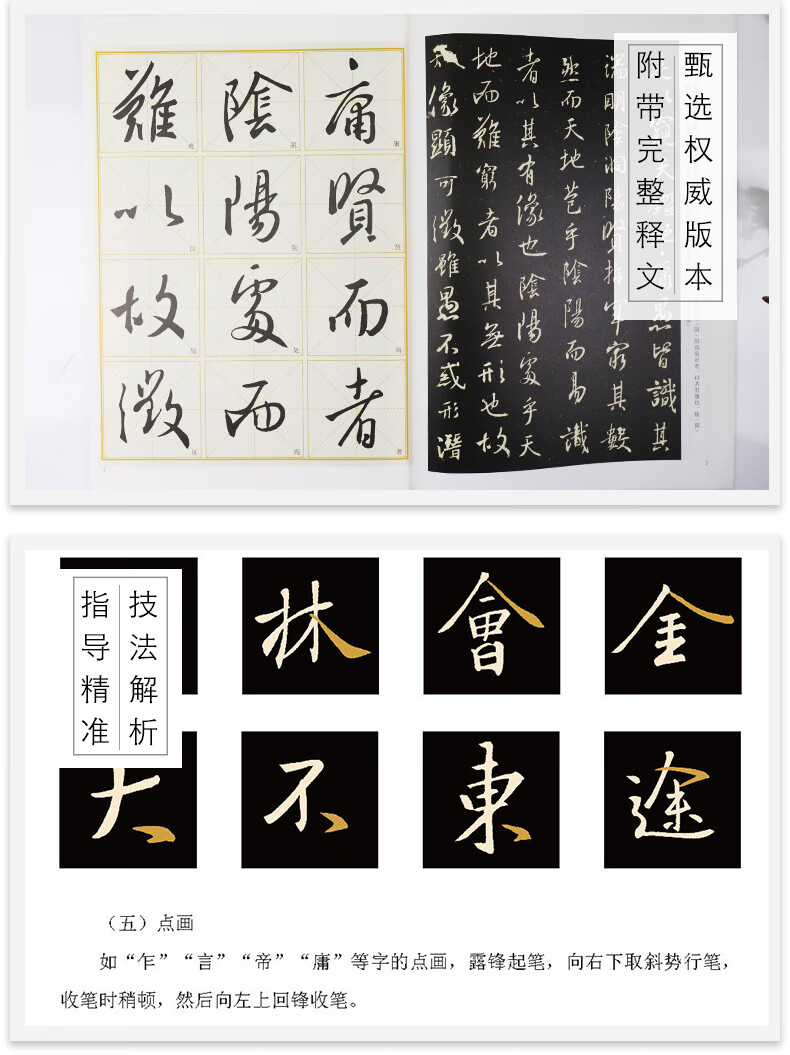 甄选权威版本
附带完整释文
愚皆識其
端明陰洞陽賢哲罕窮其數
然而天地苞乎陰陽而易識
者以其有像也陰陽處乎天
地而難窮者以其無形也故
知像顯可徵雖愚不惑形潛
庸賢而者
陰陽處而
難以故徵
技法解析
指导精准
林 會 金
大 不 東 途
（五）点画
如“乍”“言”“帝”“庸”等字的点画，露锋起笔，向右下取斜势行笔，
收笔时稍顿，然后向左上回锋收笔。